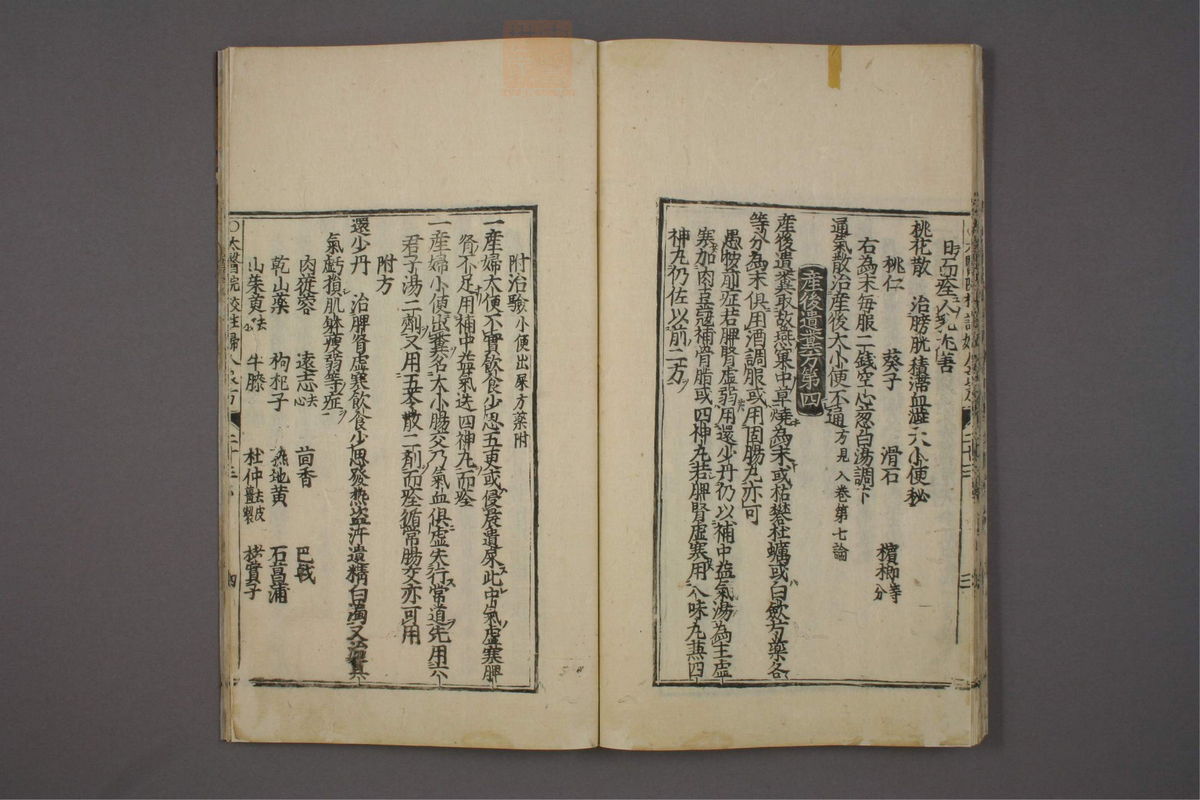 桃花散　治膀胱積滯血澁大小便秘
桃仁　葵子　滑石　檳榔等分
右為末每服二錢空心葱白湯調下
通氣散治產後大小便不通方見八卷第七論
產後遺糞方第四
產後遺糞取故燕窠中草燒為末或枯礬牡蠣或白飲芍藥各
等分為末俱用酒調服或用固腸丸亦可
愚按前症若脾腎虛弱用還少丹仍以補中益氣湯為主虛
寒加肉豆蔻補骨脂或四神丸若脾腎虛寒用八味丸兼四
神丸仍佐以前二方
附治驗小便出屎方藥附
一產婦大便不實飲食少思五更或侵晨遺屎此中氣虛寒脾
腎不足用補中益氣送四神丸而痊
一產婦小便出糞名大小腸交乃氣血俱虛失行常道先用六
君子湯二劑又用五苓散二劑而痊循常腸交亦可用
附方
還少丹　治脾腎虛寒飲食少思發熱盜汗遺精白濁又治真
氣虧損肌躰瘦弱等症
肉蓯蓉　遠志去心　茴香　巴戟
乾山藥　枸杞子　熟地黃　石菖蒲
山茱萸去　牛膝　杜仲去皮薑製　楮實子
○太醫院校註婦人良方　二十三　四